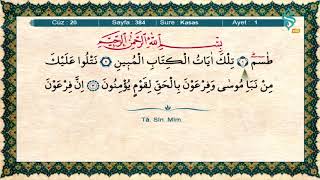 Cüz : 20 Sayfa : 384 Sure : Kasas Ayet : 1
بِسْمِ اللّٰهِ الرَّحْمٰنِ الرَّحٖيمِ
طٰسٓمٓ ﴿١﴾ تِلْكَ اٰيَاتُ الْكِتَابِ الْمُبٖينِ ﴿٢﴾ نَتْلُوا عَلَيْكَ
مِنْ نَبَأِ مُوسٰى وَفِرْعَوْنَ بِالْحَقِّ لِقَوْمٍ يُؤْمِنُونَ ﴿٣﴾ اِنَّ فِرْعَوْنَ
Tâ. Sîn. Mîm.